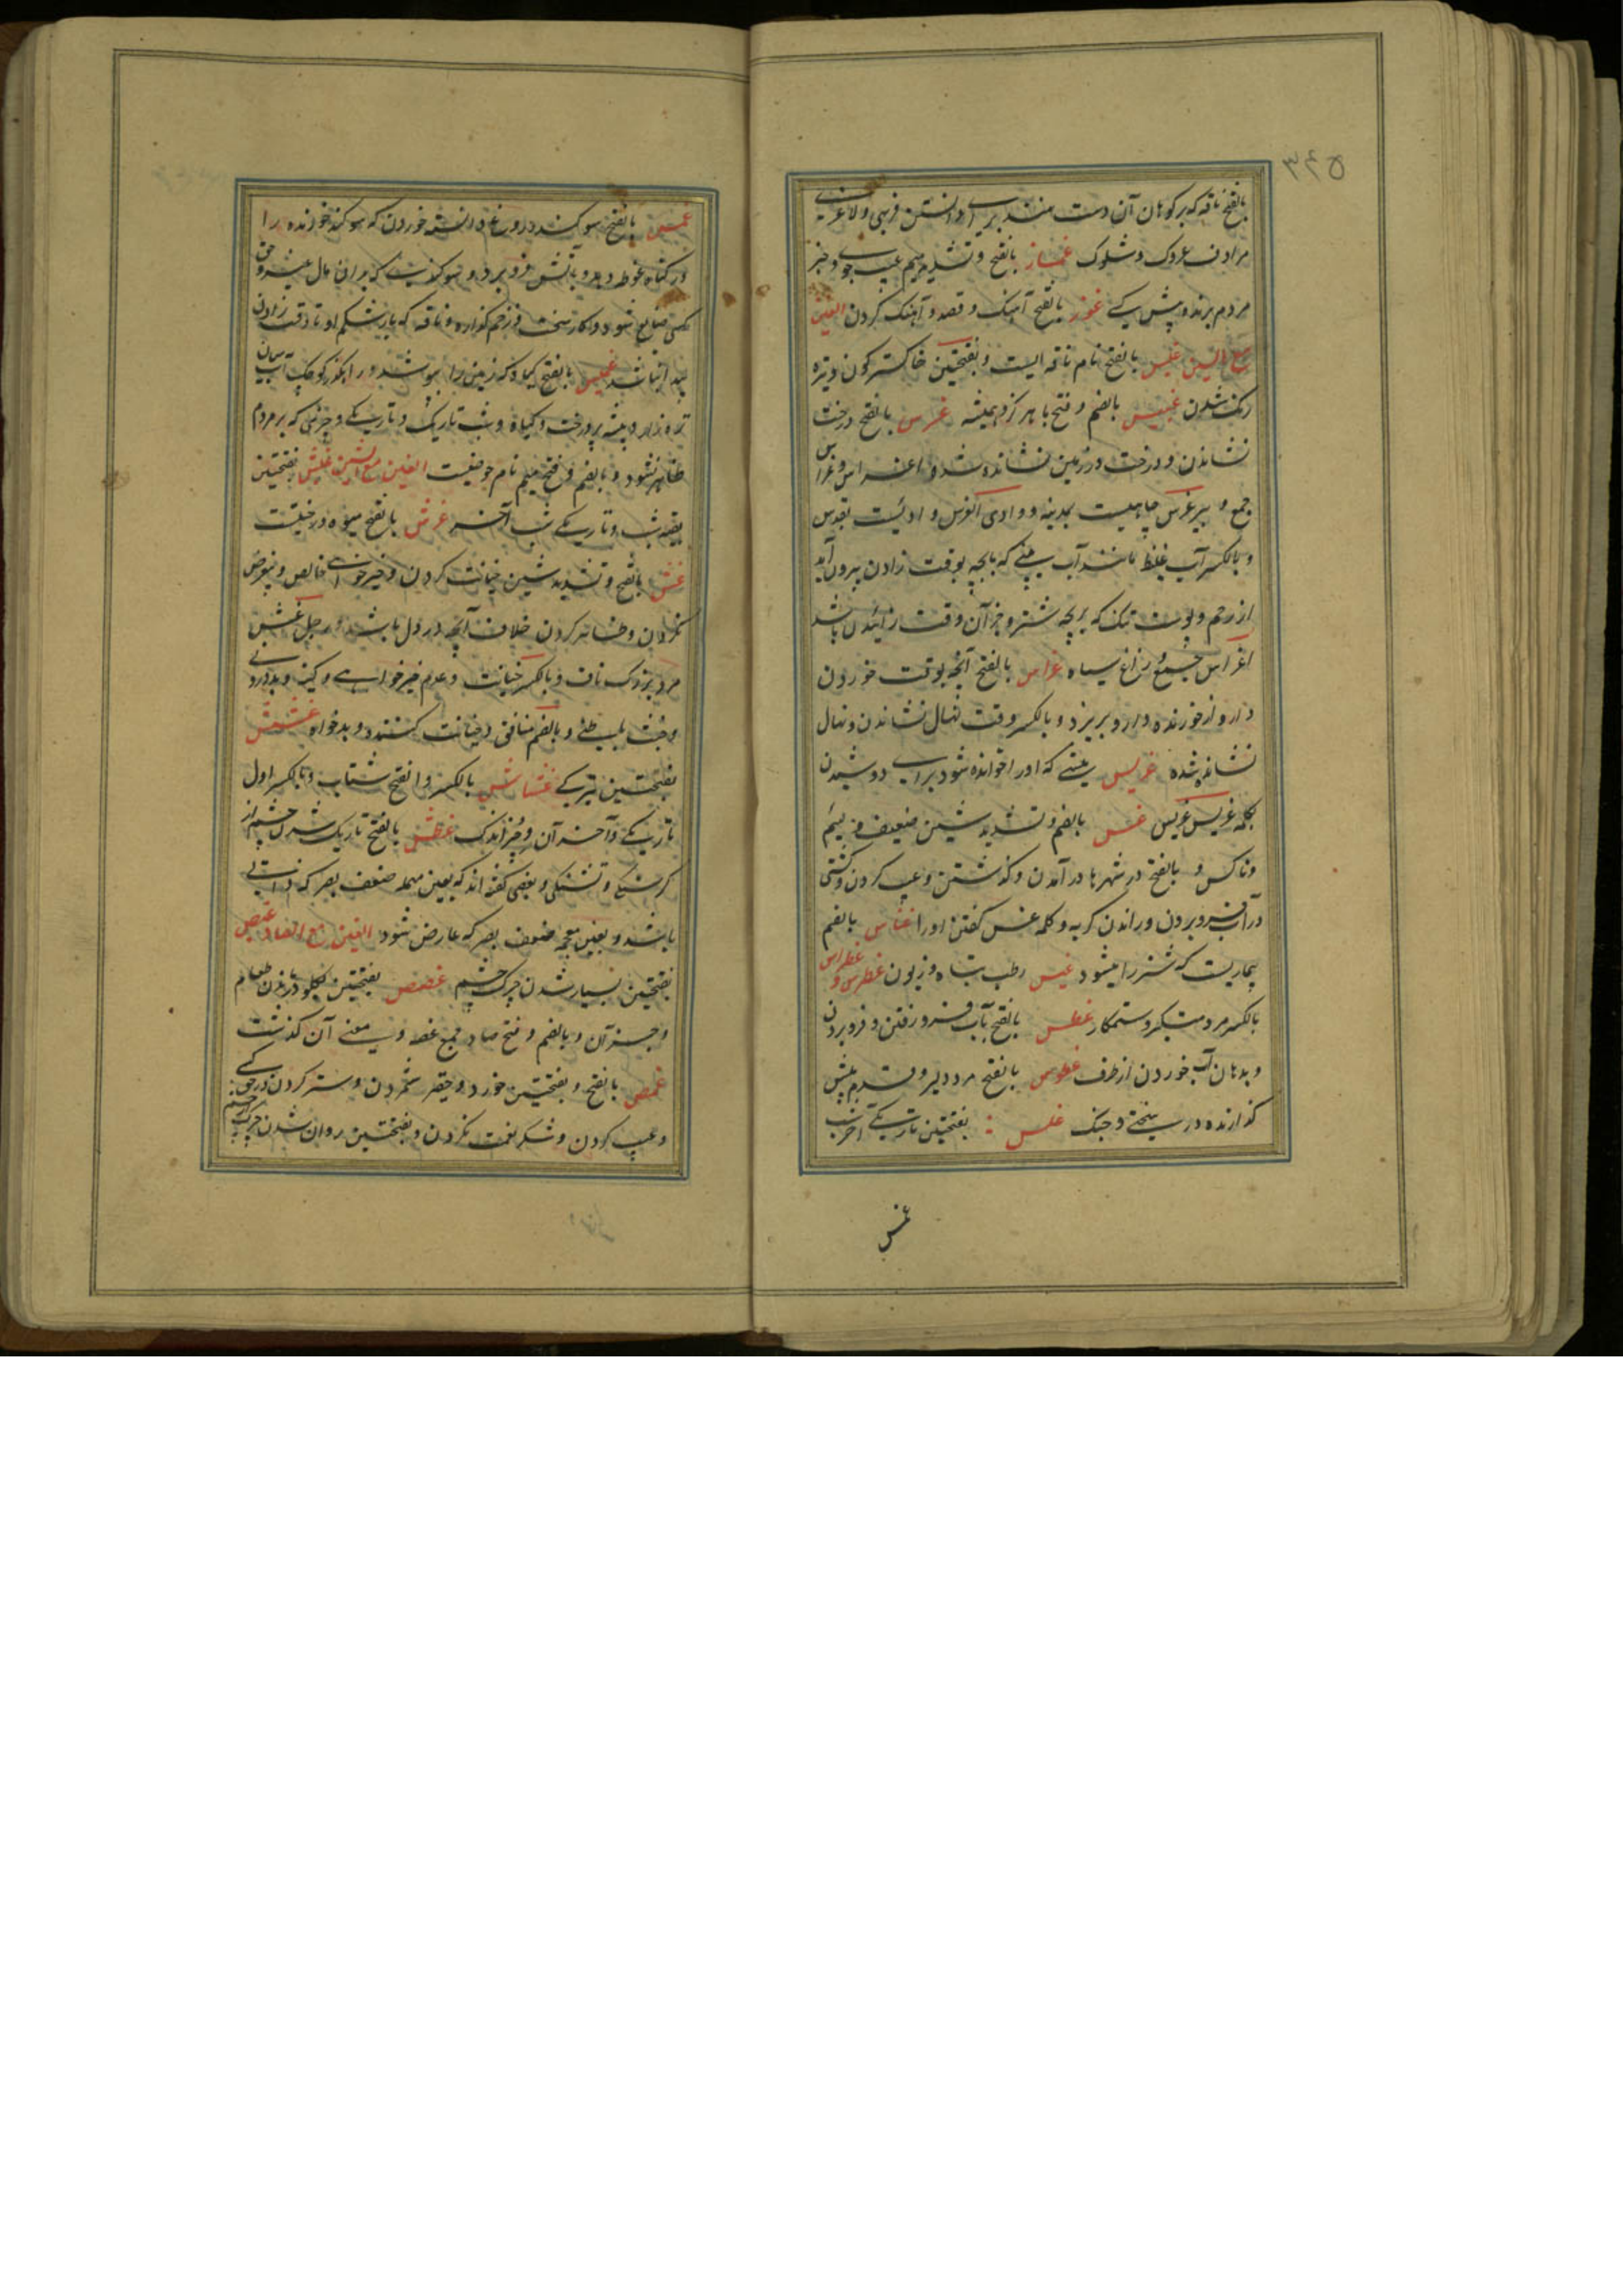 بالفتح ناقه که بر کوهان آن دست نهند برای دانستن فربهی و لاغری
مرادف عروک و شکوک غماز بالفتح و تشدید میم عیب جوی و خبر
مردم برنده پیش کسی غوز بالفتح آهنک و قصد و آهنک کردن الغین
مع السین غبس بالفتح نام ناقه ایست و بفتحتین خاکستر کون و تیره
رنک شدن غبیس بالضم و فتح با هرکز و همیشه غرس بالفتح درخت
نشاندن و درخت در زمین نشانده شده اغراس و غراس
جمع و بیر غرس چاهیست بمدینه و وادی الغرس وادئیست بقدس
و بالکسر آب غلیظ مانند آب بینی که با بچه بوقت زادن بیرون آید
از رحم و پوست تنک که بر بچه شتر و جز آن وقت زائیدن باشد
اغراس جمع و زاغ سیاه غراس بالفتح آنچه بوقت خوردن
دارو از خورنده دارو بریزد و بالکسر وقت نهال نشاندن و نهال
نشانده شده غریس میشی که او را خوانده شود برای دوشیدن
بکلمه غریس غریس غس بالضم و تشدید سین ضعیف و لئیم
و ناکس و بالفتح در شهرها در آمدن و گذشتن و عیب کردن و کشتی
در آب فرو بردن و راندن کربه و کلمه غس کفتن او را غساس بالضم
بیماریست که شتر را میشود غسیس رطب تباه و زبون غطرس و غطراس
بالکسر مرد متکبر و ستمکار غطس بالفتح بآب فرو رفتن و فرو بردن
و بدهان آب خوردن از ظرف غطوس بالفتح مرد دلیر و قدم پیش
کذارنده در سختی و جنک غلس بفتحتین تاریکی آخر شب
غمس
غمس بالفتح سوکند دروغ دانسته خوردن که سوکند خورنده را
در کناه غوطه دهد و بآتش فرو برد و سوکندیست که بدان مال و حق
کسی ضایع شود و کار سخت و زخم کذاره و ناقه که بار شکم او تا وقت زادن
پیدا نباشد غمیس بالفتح کیاه که زمین را بپوشد و رهکذر کوچک آب میان
تره زار و بیشه پر درخت و کیاه و شب تاریک و تاریکی و چیزی که بر مردم
ظاهر نشود و بالضم و فتح میم نام موضعیست الغین مع الشین غبش بفتحتین
بقیه شب و تاریکی شب آخر غرش بالفتح میوه درختیست
غش بالفتح و تشدید شین خیانت کردن و خیرخواهی خالص و بیغرض
نکردن و ظاهر کردن خلاف آنچه در دل باشد و رجل غش
مرد بزرک ناف و بالکسر خیانت و عدم خیرخواهی و کینه و بدورونی
و خبث باطنی و بالضم منافق و خیانت کننده و بدخواه غشش
بفتحتین تیرکی غشاش بالکسر و الفتح شتاب و بالکسر اول
تاریکی و آخر آن و چیز اندک غطش بالفتح تاریک شدن چشم از
کرسنکی و تشنکی و بعضی کفته اند که بعین مهمله ضعف بصر که ذاتی
باشد و بغین معجمه ضعف بصر که عارض شود الغین مع الصاد غبص
بفتحتین بسیار شدن چرک چشم غصص بفتحتین بکلو درماندن طعام
و جز آن و بالضم و فتح صاد جمع غصه و معنی آن کذشت
غمص بالفتح و بفتحتین خورد و حقیر شمردن و ستر کردن در حق کسی
و عیب کردن و شکر نعمت نکردن و بفتحتین روان شدن چرک از چشم